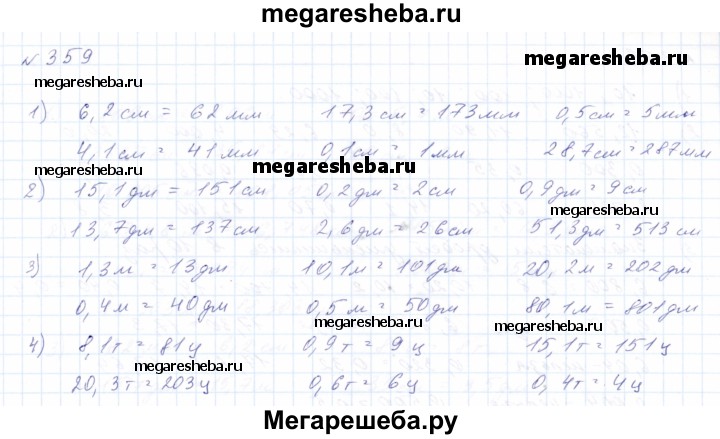 megaresheba.ru
№359
megaresheba.ru
megaresheba.ru
1) 6,2см = 62мм 17,3см = 173мм 0,5см = 5мм
4,1см = 41мм 0,1см = 1мм 28,7см = 287мм
megaresheba.ru
megaresheba.ru
2) 15,1дм = 151см 0,2дм = 2см 0,9дм = 9см
megaresheba.ru
13,7дм = 137см 2,6дм = 26см 51,3дм = 513см
3) 1,3м = 13дм 10,1м = 101дм 20,2м = 202дм
0,4м = 40дм 0,5м = 50дм 80,1м = 801дм
megaresheba.ru
megaresheba.ru
4) 8,1т = 81ц 0,9т = 9ц 15,1т = 151ц
megaresheba.ru
20,3т = 203ц 0,6т = 6ц 0,4т = 4ц
Мегарешеба.ру